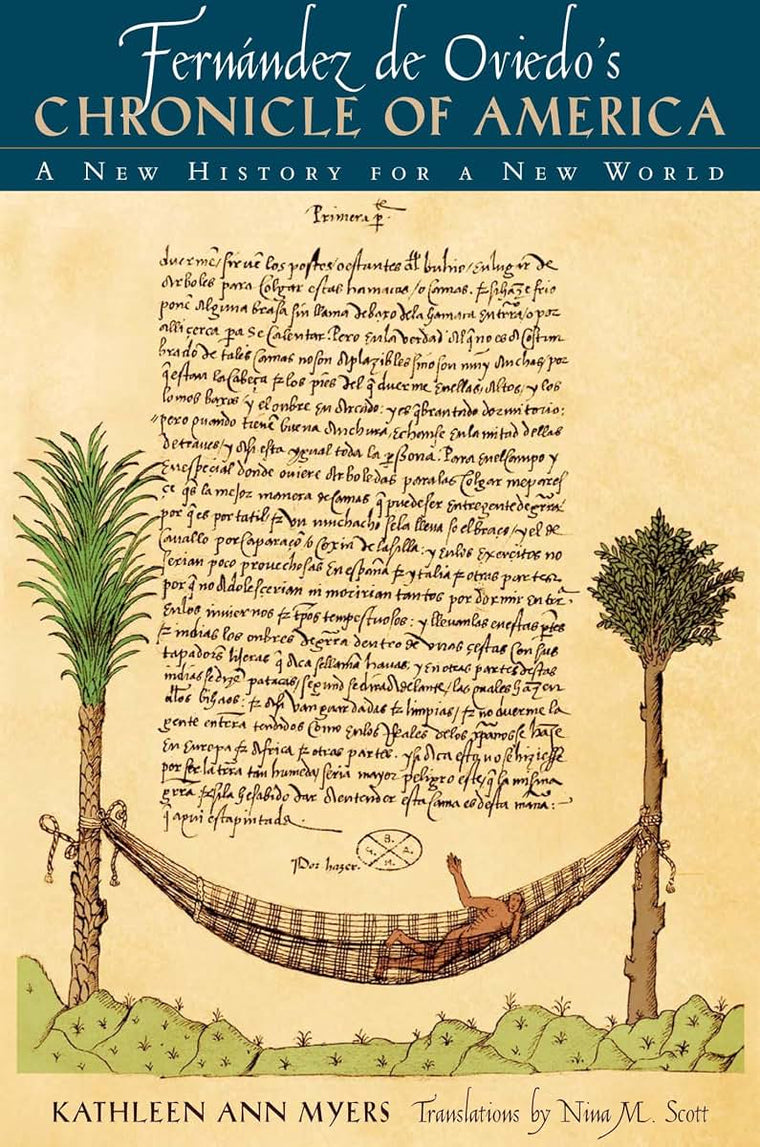 Fernández de Oviedo's
CHRONICLE OF AMERICA
A NEW HISTORY FOR A NEW WORLD
Primera p̄te
duermē / sirvē los postes / o estantes del buhio / en lugar de
Arboles para Colgar estas hamacas / o camas. & si haze frio
ponē Alguna brasa sin llama debaxo de la hamaca En trrā / o por
alli cerca pa se Calentar. Pero En la verdad Al q̄ no es A Costum
brado de tales Camas no son Aplazibles si no son muy Anchas / por
q̄ estan la Cabeça & los pies del q̄ duerme En ellas, Altos, y los
lomos baxos / y el onbre En Arcado: y es q̄brantado dormitorio:
pero quando tienē buena Anchura, Echanse En la mitad dellas
de traves / y Asi esta ygual toda la persona. Para En el Campo y
En especial donde oviere Arboledas para las Colgar me pares
çe q̄ es la mejor manera de Camas q̄ puede ser Entre gente de grrā
por q̄ es portatil / & un muchacho se la lleva so el braço / y el de
Cavallo por Caparaçō / o Coxin de la silla: y En los Exercitos no
serian poco provechosas En españa & ytalia & otras partes
por q̄ no Adolescerian ni moririan tantos por dormir En trrā
En los inviernos & tp̄os tempestuosos: y llevanlas en estas p̄tes
& indias los onbres de grrā dentro de unas çestas Con sus
tapadores ligeras q̄ Aca se llamā havas, y En otras partes destas
indias se dizē patacas / segund se dira Adelante / las quales hazen
de los bihaos: & Asi van guardadas & limpias / & no duerme la
gente en trrā tendidos Como En los Reales de los xp̄anos se haze
En Europa & Africa & otras partes. y si Aca esto no se hiziesse
por ser la trrā tan humeda seria mayor peligro este / q̄ la misma
grrā & si la he sabido dar A entender esta Cama es desta manā:
q̄ aqui esta pintada
Por hazer.
KATHLEEN ANN MYERS Translations by Nina M. Scott